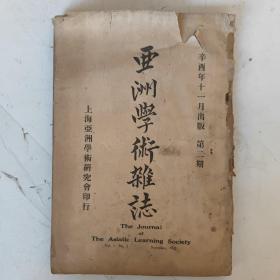 辛酉年十一月出版 第二期
亞洲學術雜誌
上海亞洲學術研究會印行
The Journal
of
The Asiatic Learning Society